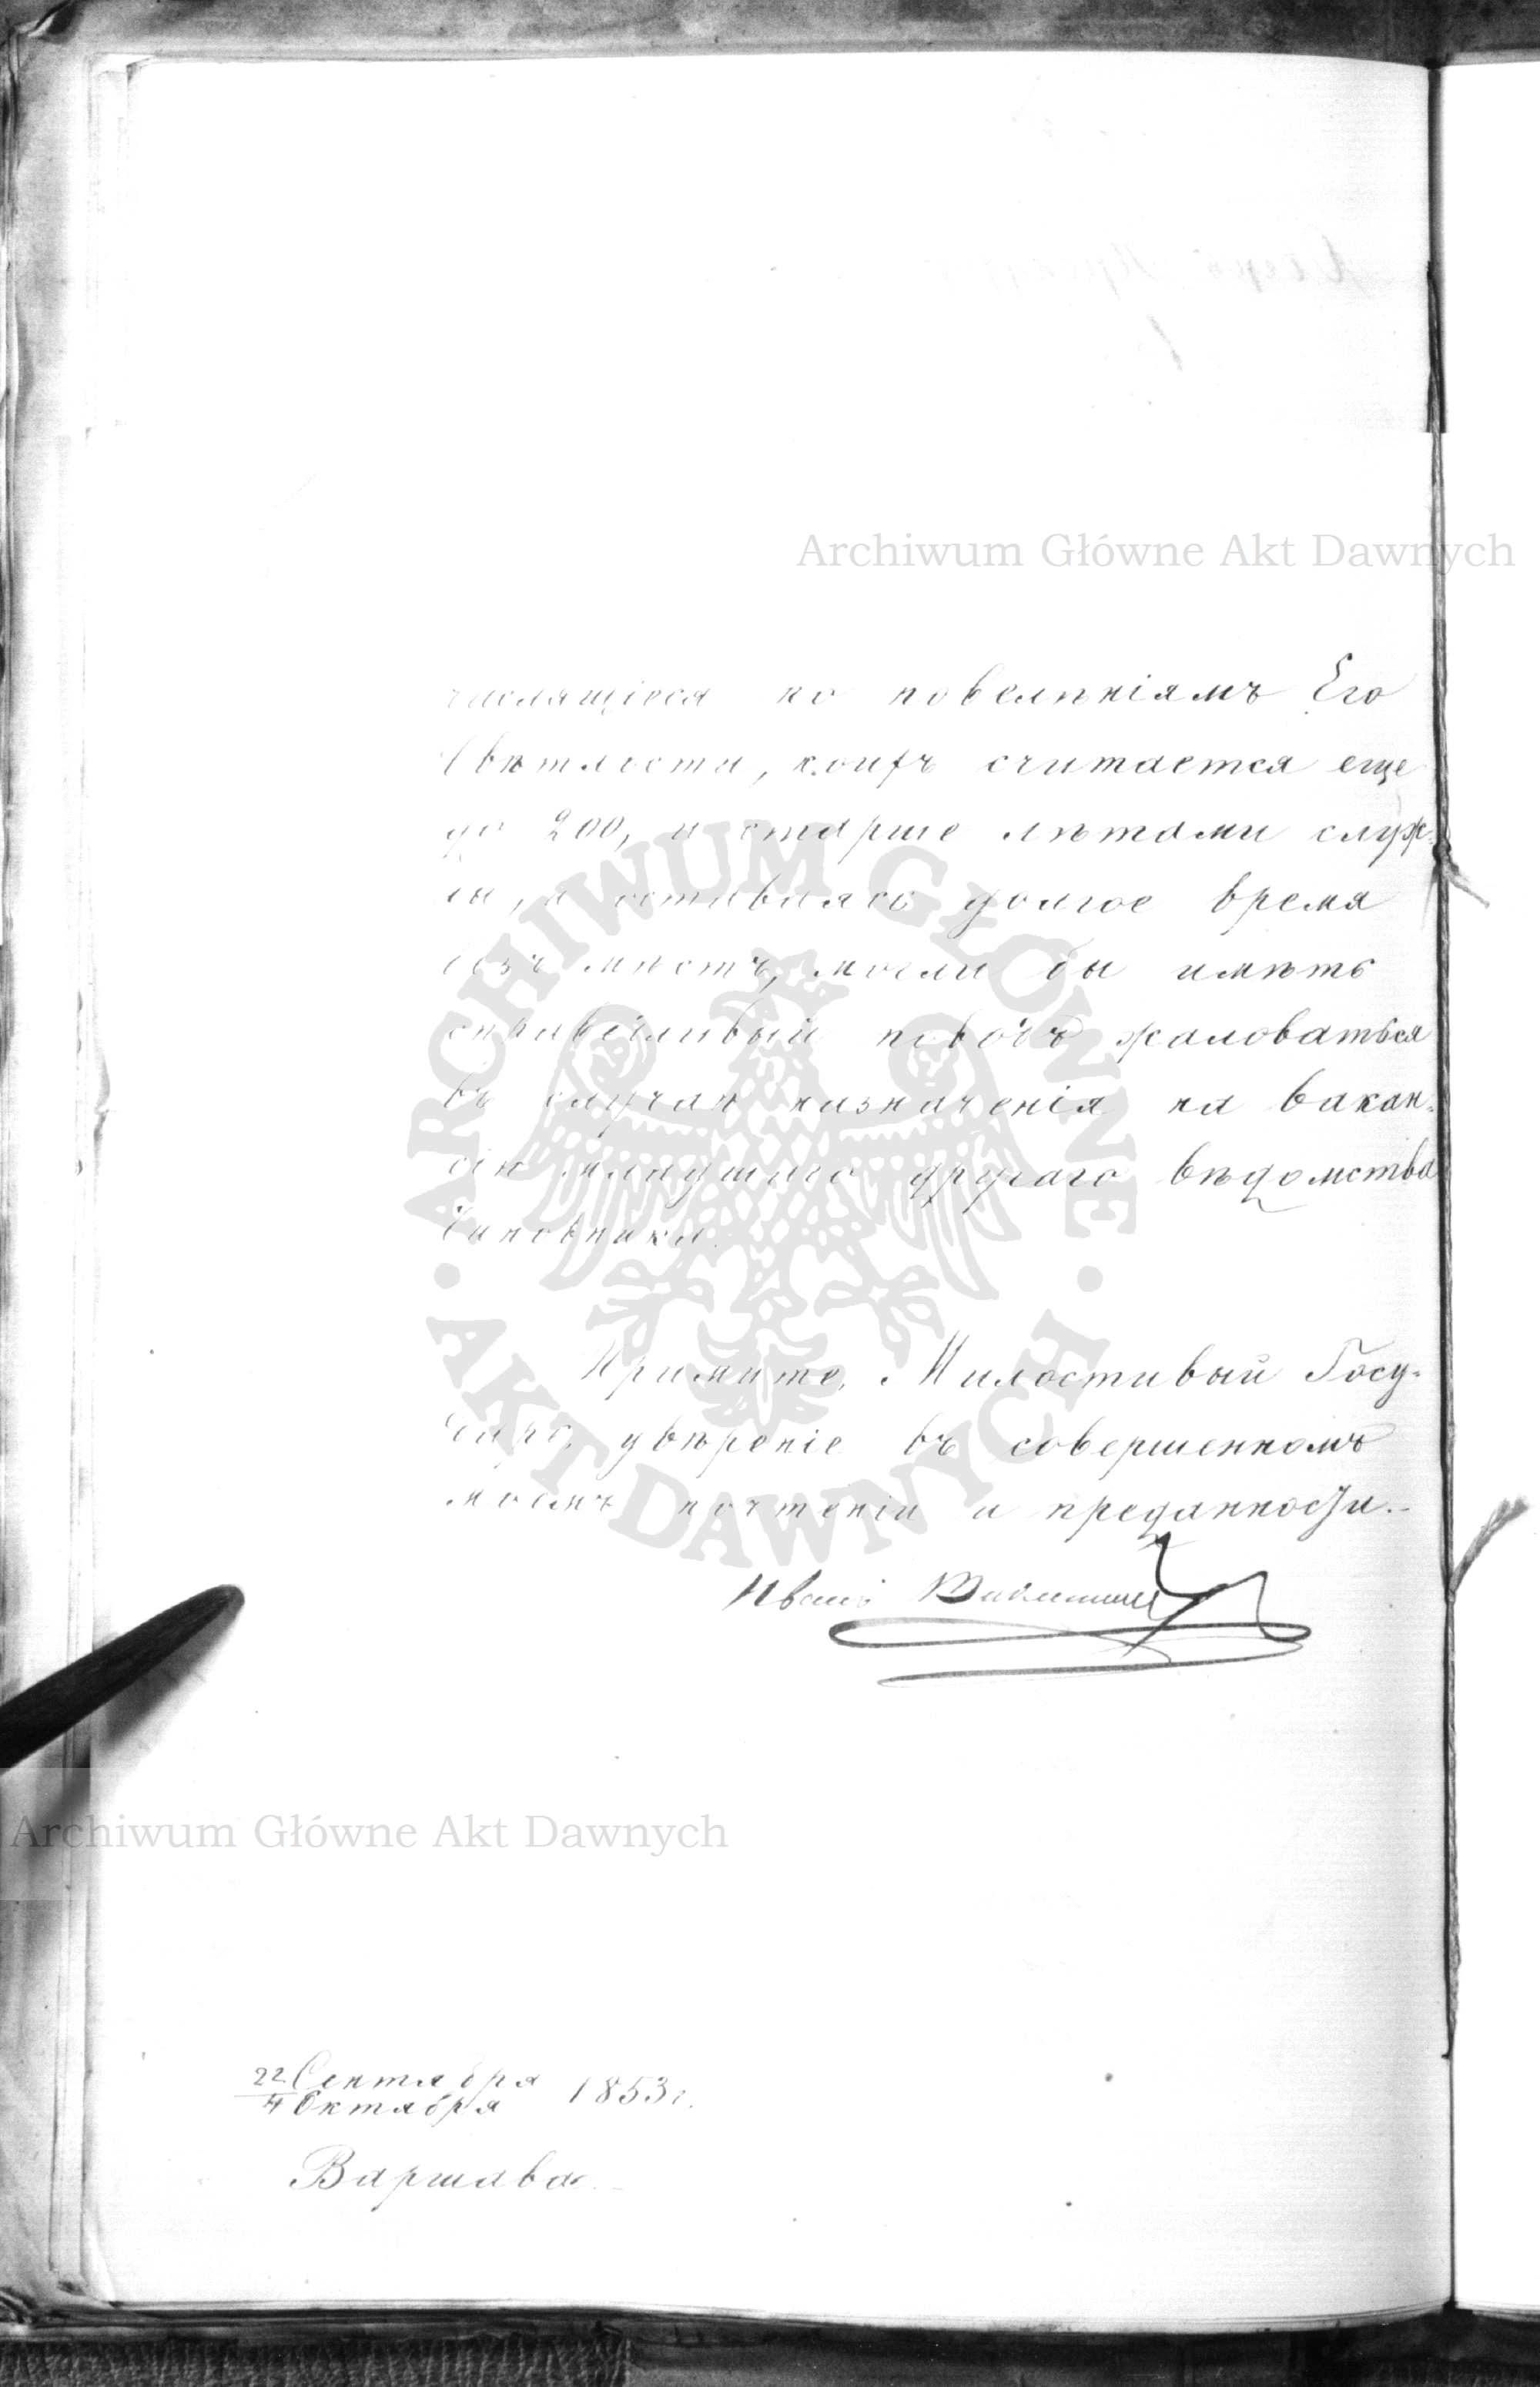 Archiwum Główne Akt Dawnych
числящіеся по повелѣніямъ Его
Свѣтлости, коихъ считается еще
до 200, и старше лѣтами служ-
бы, и оставаясь долгое время
безъ мѣстъ, могли бы имѣть
справедливый поводъ жаловаться
въ случаѣ назначенія на вакан-
сію младшаго другаго вѣдомства
Чиновника.
Примите, Милостивый Госу-
дарь, увѣреніе въ совершенномъ
моемъ почтеніи и преданности.
Иванъ
ARCHIWUM GŁÓWNE
AKT DAWNYCH
Archiwum Główne Akt Dawnych
22 Сентября
4 Октября 1853 г.
Варшава.